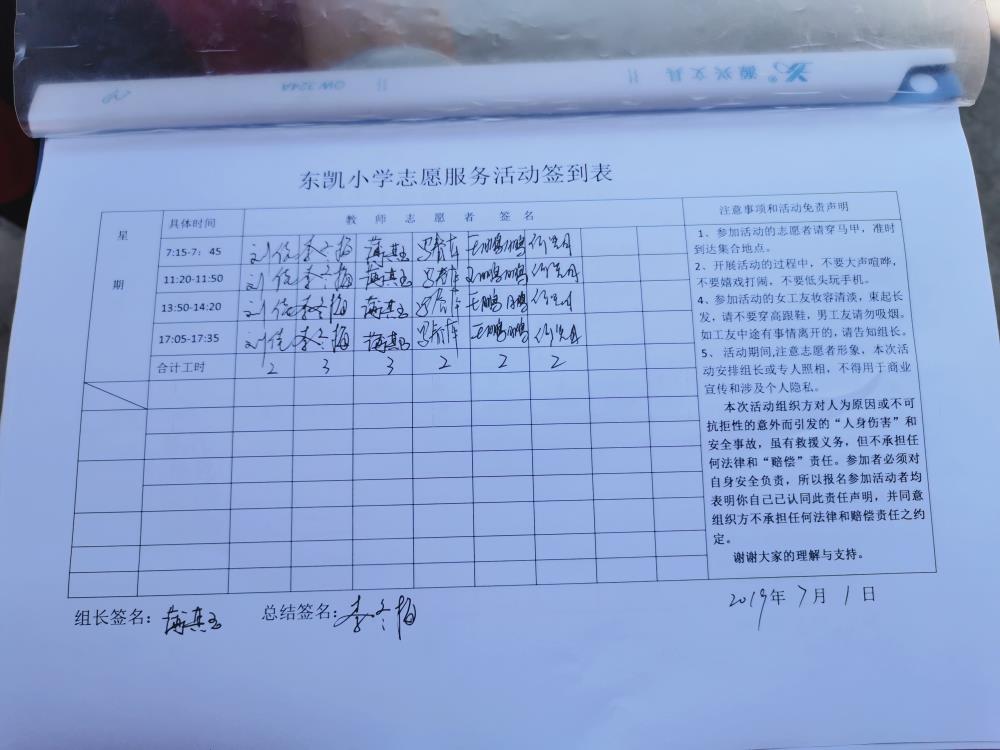 源兴文具
QW324A
东凯小学志愿服务活动签到表
星期
具体时间
教师志愿者签名
注意事项和活动免责声明
7:15-7：45 刘佳 李冬梅
11:20-11:50 刘佳 李冬梅
13:50-14:20 刘佳 李冬梅
17:05-17:35 刘佳 李冬梅
合计工时 2 3 3 2 2 2
1、参加活动的志愿者请穿马甲，准时
到达集合地点。
2、开展活动的过程中，不要大声喧哗，
不要嬉戏打闹，不要低头玩手机。
4、参加活动的女工友妆容清淡，束起长
发，请不要穿高跟鞋，男工友请勿吸烟。
如工友中途有事情离开的，请告知组长。
5、活动期间,注意志愿者形象，本次活
动安排组长或专人照相，不得用于商业
宣传和涉及个人隐私。
本次活动组织方对人为原因或不可
抗拒性的意外而引发的“人身伤害”和
安全事故，虽有救援义务，但不承担任
何法律和“赔偿”责任。参加者必须对
自身安全负责，所以报名参加活动者均
表明你自己已认同此责任声明，并同意
组织方不承担任何法律和赔偿责任之约
定。
谢谢大家的理解与支持。
组长签名： 总结签名：李冬梅
2019年7月1日